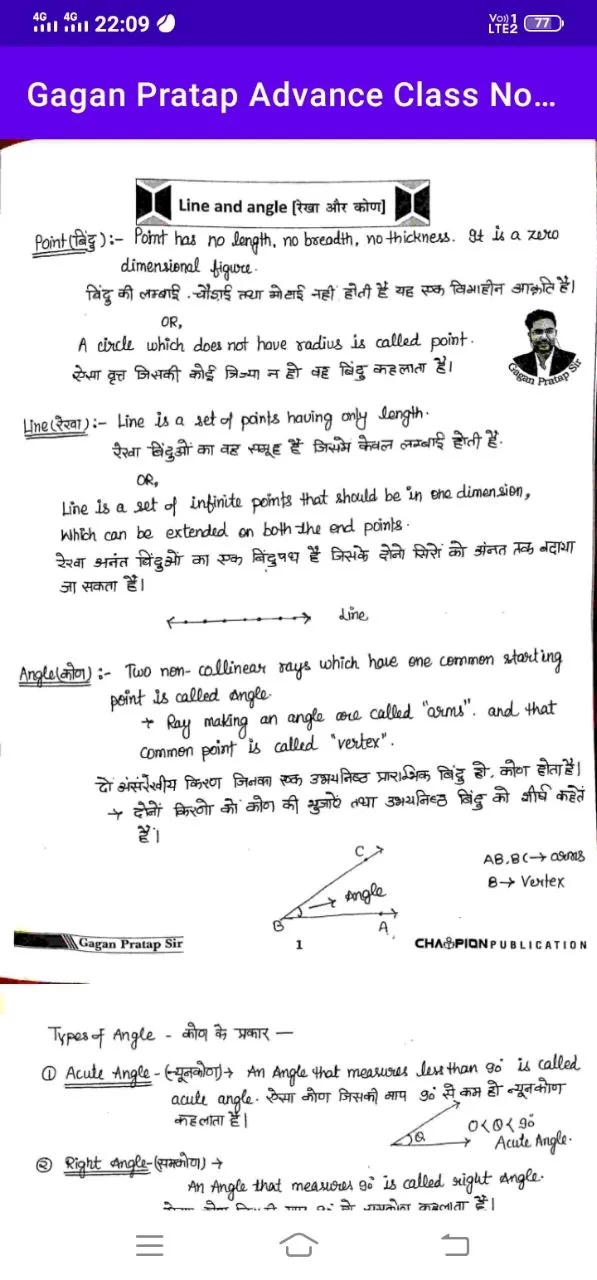 4G 4G 22:09 Vo)) 1 LTE2 77
Gagan Pratap Advance Class No...
Line and angle [रेखा और कोण]
Point (बिंदु) :- Point has no length, no breadth, no thickness. It is a zero
dimensional figure.
बिंदु की लम्बाई, चौड़ाई तथा मोटाई नहीं होती हैं यह एक विमाहीन आक्रति है।
OR,
A circle which does not have radius is called point.
ऐसा वृत्त जिसकी कोई त्रिज्या न हो वह बिंदु कहलाता है।
Gagan Pratap Sir
Line (रेखा) :- Line is a set of points having only length.
रेखा बिंदुओं का वह समूह हैं जिसमे केवल लम्बाई होती हैं.
OR,
Line is a set of infinite points that should be in one dimension,
Which can be extended on both the end points.
रेखा अनंत बिंदुओं का एक बिंदुपथ हैं जिसके दोनो सिरों को अंनत तक बढाया
जा सकता हैं।
Line
Angle (कोण) :- Two non-collinear rays which have one common starting
point is called angle.
→ Ray making an angle are called "arms". and that
common point is called "vertex".
दो असंरेखीय किरण जिनका एक उभयनिष्ठ प्रारम्भिक बिंदु हो, कोण होता है।
→ दोनों किरणो को कोण की भुजाऐं तथा उभयनिष्ठ बिंदु को शीर्ष कहते
हैं।
C
Angle
B A
AB, BC → arms
B → Vertex
Gagan Pratap Sir 1 CHAMPION PUBLICATION
Types of Angle - कोण के प्रकार —
① Acute Angle - (न्यूनकोण) → An Angle that measures less than 90° is called
acute angle. ऐसा कोण जिसकी माप 90° से कम हो न्यूनकोण
कहलाता हैं।
θ
0<θ<90°
Acute Angle.
② Right Angle - (समकोण) →
An Angle that measures 90° is called right Angle.